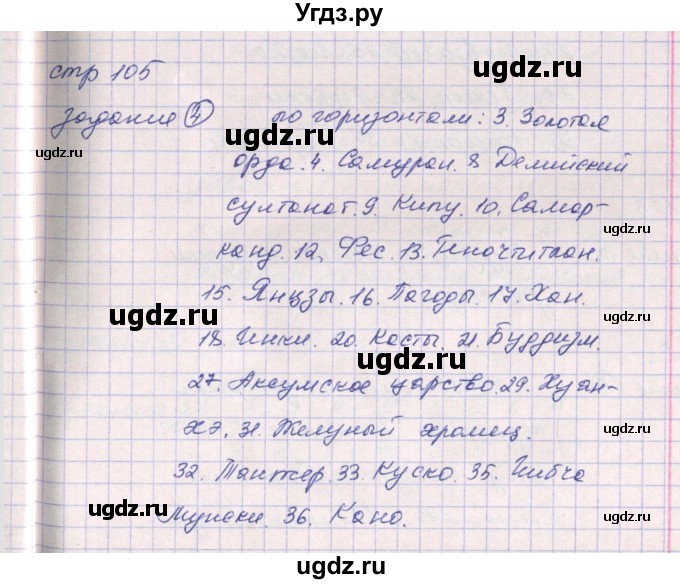 Угдз.ру
стр 105
задание 4 по горизонтали: 3. Золотая
Орда. 4. Самураи. 8 Делийский
султанат. 9. Кипу. 10. Самар-
канд. 12. Фес. 13. Теночтитлан.
15. Янцзы. 16. Пагоды. 17. Хан.
18. Инки. 20. Касты. 21. Буддизм.
27. Аксумское царство. 29. Хуан-
хэ. 31. Желуный хромец.
32. Танжер. 33. Куско. 35. Чибча
Муиски. 36. Кано.
ugdz.ru
ugdz.ru
ugdz.ru
ugdz.ru
ugdz.ru
ugdz.ru
ugdz.ru
ugdz.ru
ugdz.ru
ugdz.ru
ugdz.ru
ugdz.ru
ugdz.ru